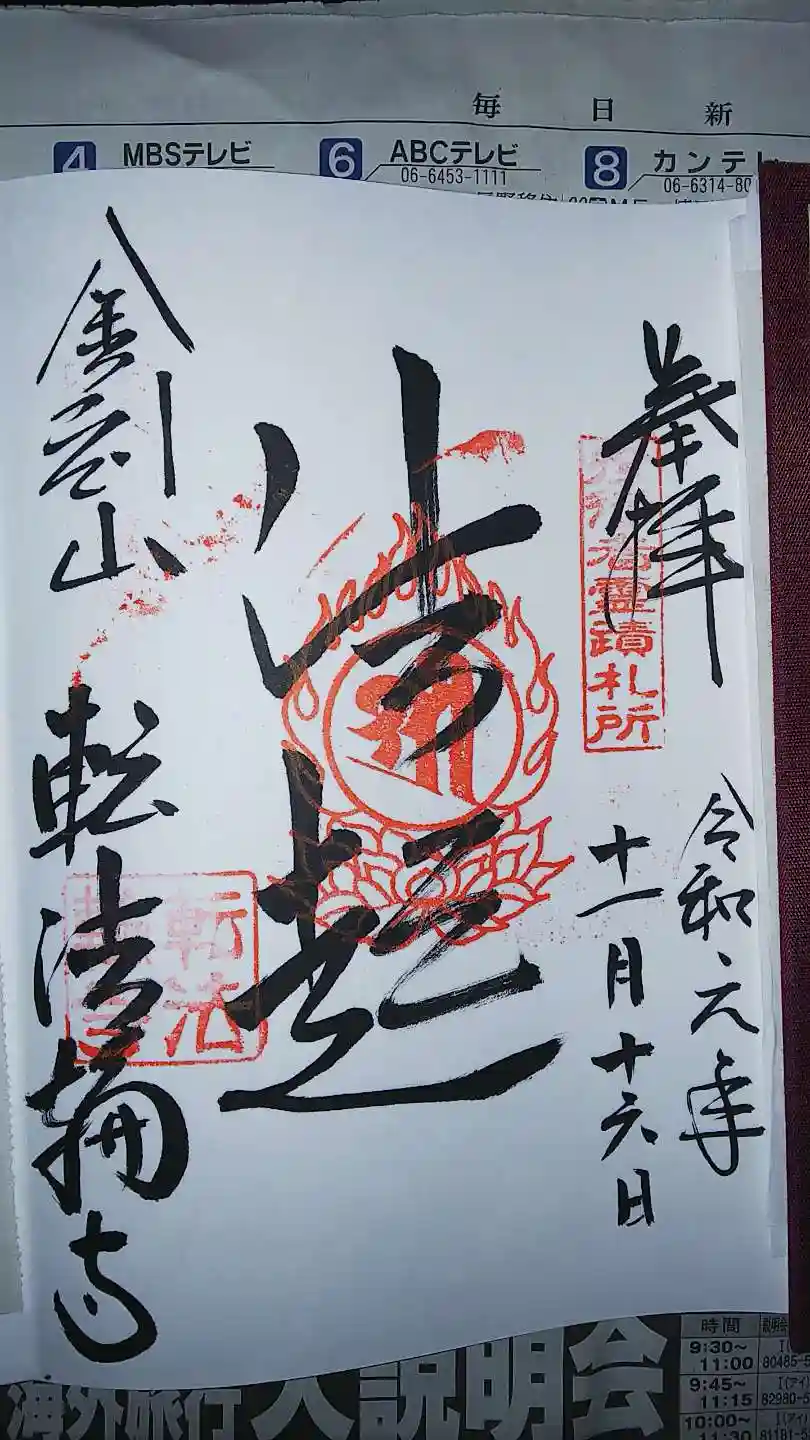 毎日新
4 MBSテレビ
6 ABCテレビ
06-6453-1111
8 カンテレ
06-6314-80
奉拝
霊蹟札所
令和元年
十一月十六日
法起
金剛山
転法輪寺
転法
海外旅行大説明会
時間
9:30~
11:00
80485-5
9:45~
11:15
82980-5
10:00~
11:30
81181-